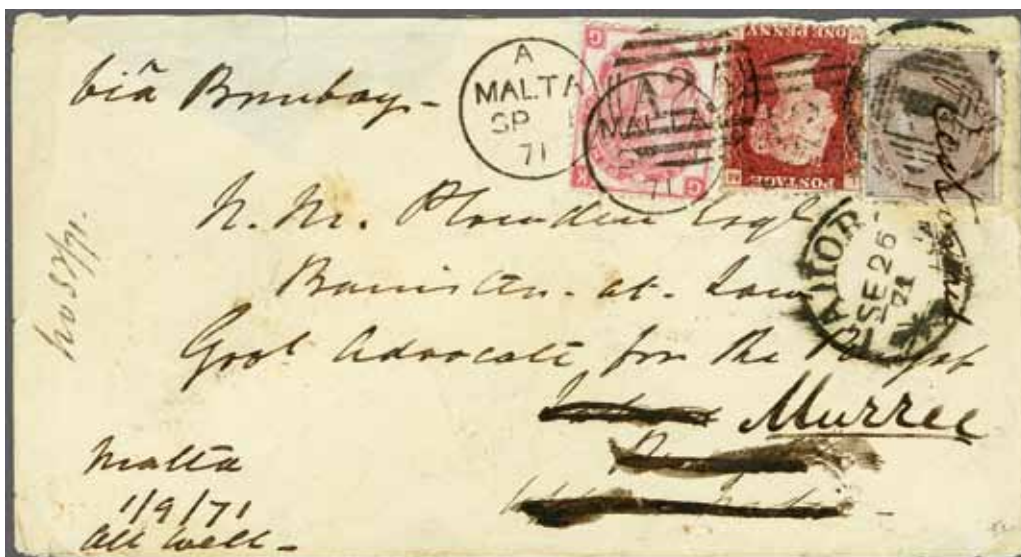 viâ Bombay -
A
MALTA
SP 1
71
A25
MALTA
71
G
G K
ONE PENNY
POSTAGE
M
N. M. Plowden Esqre
Barrister - at - Law
Govt Advocate for the Punjab
Murree
LAHOR
SE 26
71
Malta
1/9/71
All well -